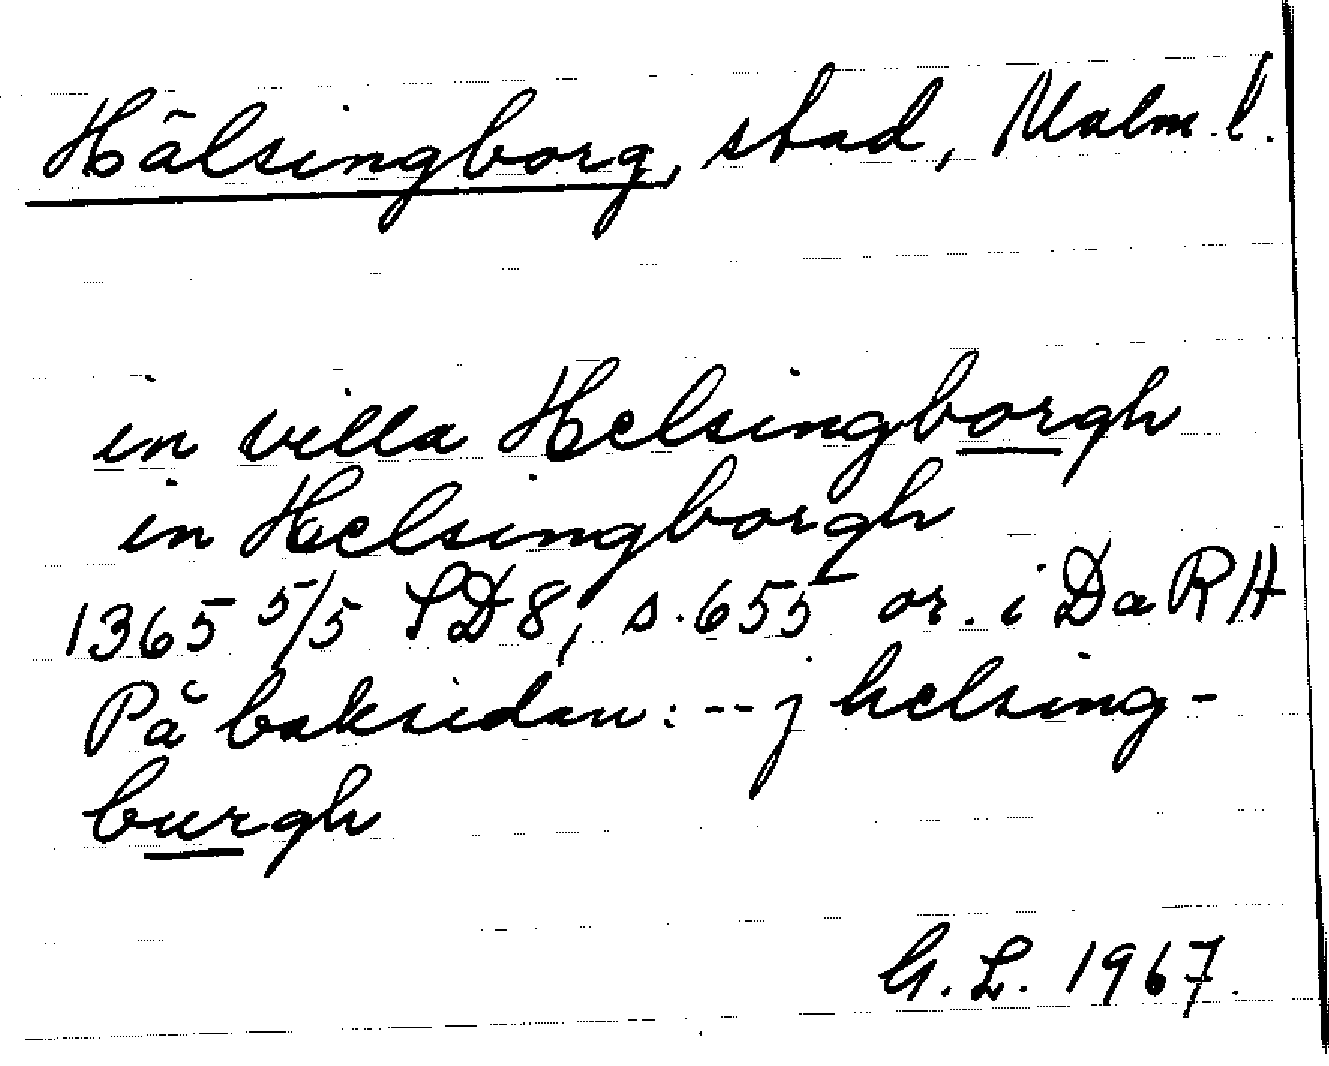 Hälsingborg, stad, Malm. l.
in villa Helsingborgh
in Helsingborgh
1365 5/5 SD8, s. 655 or. i DaRA
På baksidan: -- j helsing-
burgh
G. L. 1967.